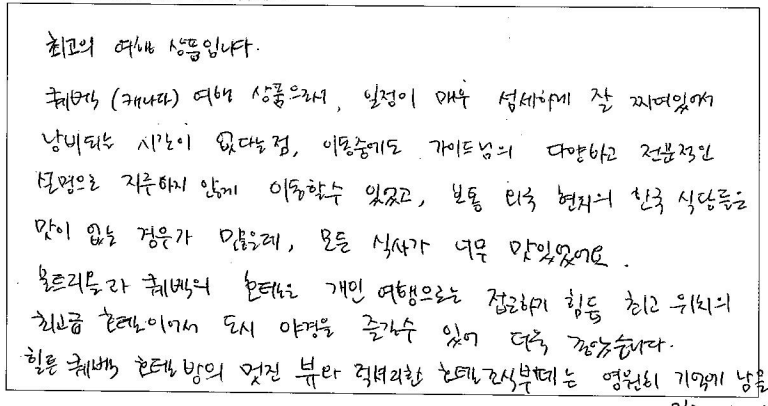 최고의 여행 상품입니다.
퀘벡 (캐나다) 여행 상품으로서, 일정이 매우 섬세하게 잘 짜여있어서
낭비되는 시간이 없다는점, 이동중에도 가이드님의 다양하고 전문적인
설명으로 지루하지 않게 이동할수 있었고, 보통 외국 현지의 한국 식당들은
맛이 없는 경우가 많은데, 모든 식사가 너무 맛있었어요.
몬트리올과 퀘벡의 호텔은 개인 여행으로는 접근하기 힘든 최고 위치의
최고급 호텔이어서 도시 야경을 즐길수 있어 더욱 좋았습니다.
힐튼 퀘벡 호텔방의 멋진 뷰와 럭셔리한 호텔조식부페는 영원히 기억에 남을